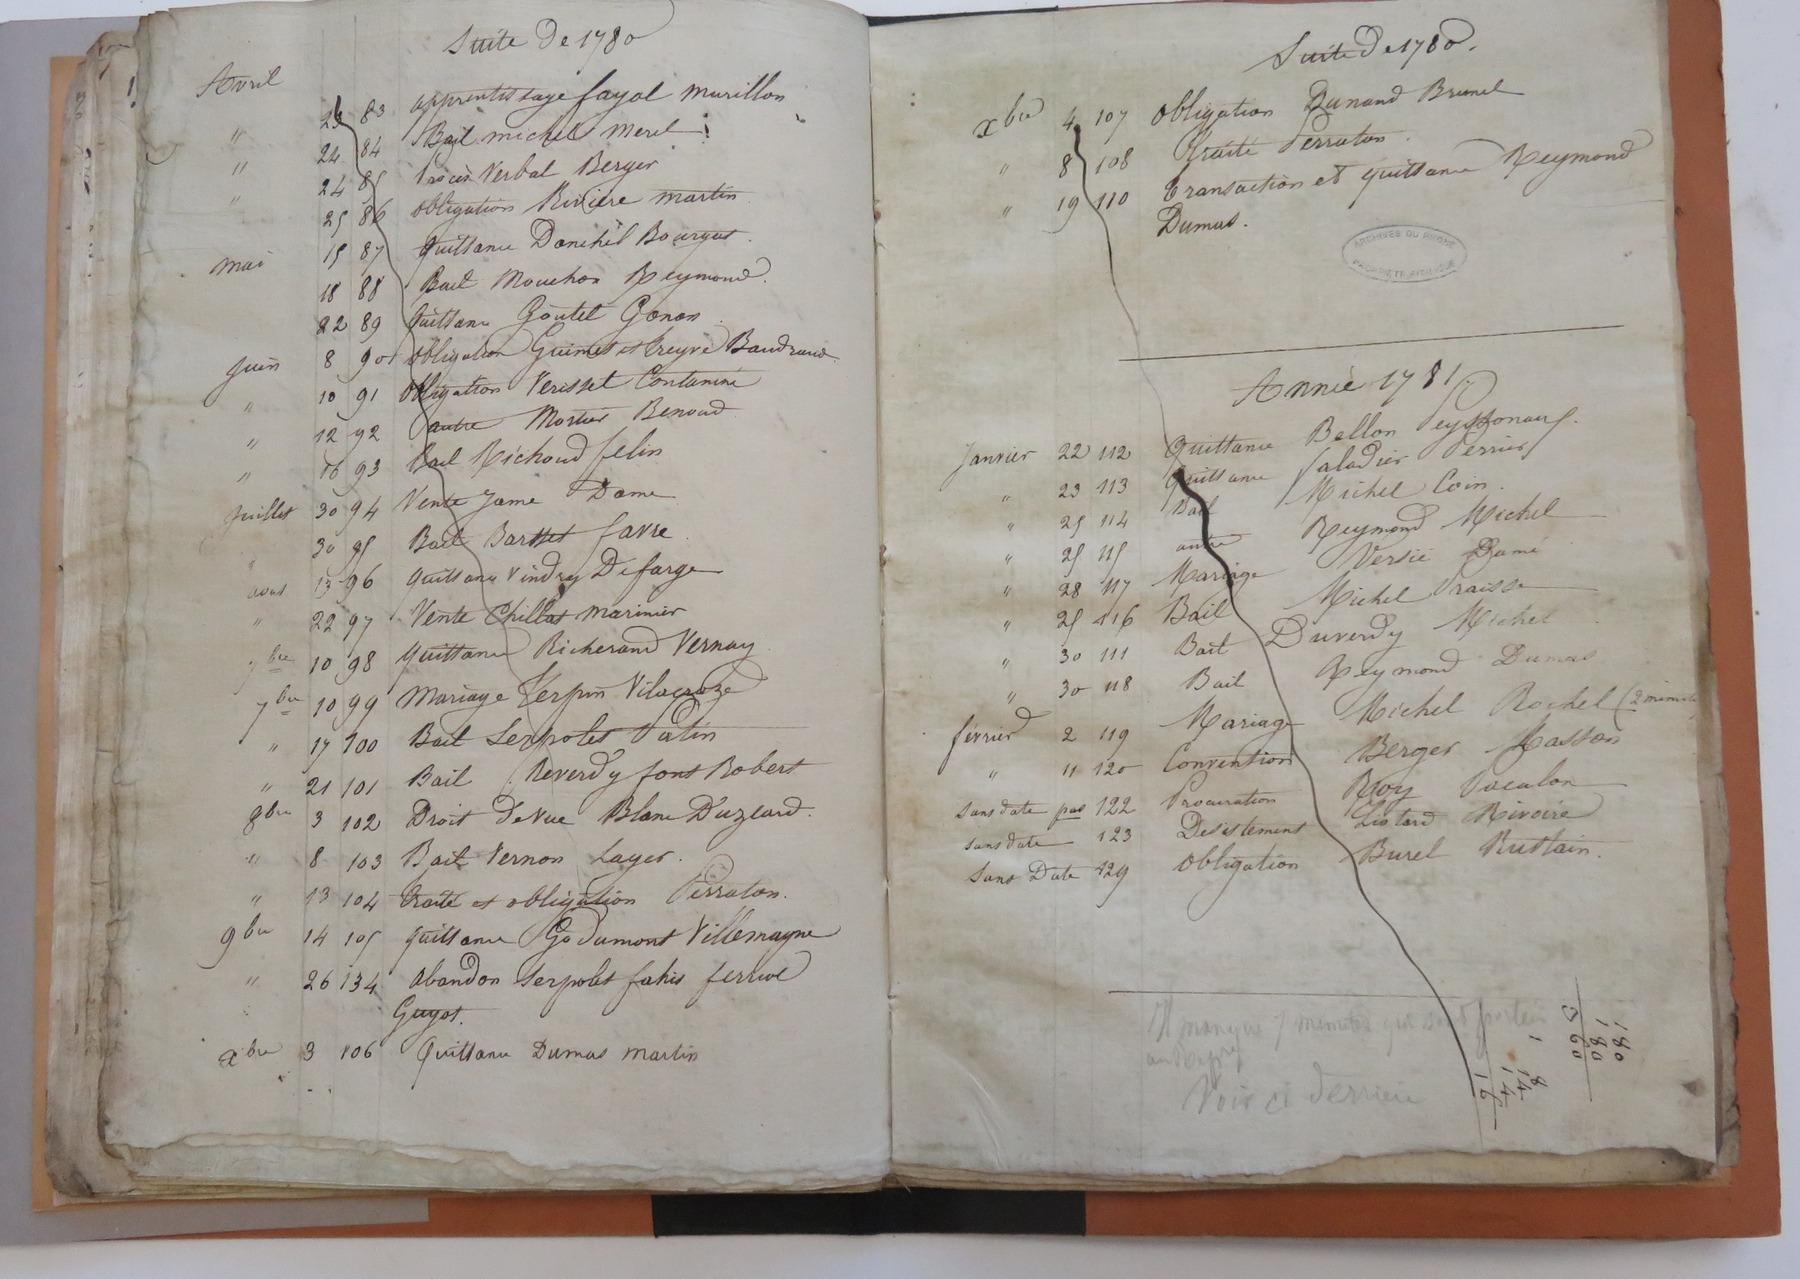 Suite De 1780
Avril 23 83 apprentissage fayol Murillon
" 24 84 Bail michel Merel
" 24 85 Procès Verbal Berger
" 25 86 obligation Rivière martin
mai 15 87 quittance Bourgat
18 88 Bail Mouchon Reymond
22 89 quittance Goutel Gonon
juin 8 90 obligation Guimet et Treyve Baudrand
" 10 91 obligation Verisset Contamine
" 12 92 autre Mortier Benoud
" 16 93 Bail Richoud felin
juillet 30 94 Vente Jame Dame
" 30 95 Bail favre
aout 13 96 quittance Vindry Defarge
" 22 97 Vente Chillat marinier
7bre 10 98 quittance Richerand Vernay
7bre 10 99 Mariage Terpin
" 17 100 Bail Serpolet Patin
" 21 101 Bail Reverdy font Robert
8bre 3 102 Droit de Vue Blanc D'uzeard.
" 8 103 Bail Vernon Layer.
" 13 104 traité et obligation Perraton.
9bre 14 105 quittance Godumont Villemagne
" 26 134 abandon Serpolet
Guyot.
xbre 3 106 Quittance Dumas martin
Suite De 1780.
xbre 4 107 obligation Dunand Brunel
" 8 108 traité Perraton.
" 19 110 transaction et quittance Reymond
Dumas.
ARCHIVES DU RHONE
Année 1781
Janvier 22 112 Quittance Bellon
" 23 113 Quittance Valadier Perrier
" 25 114 Bail Michel Coin.
" 25 115 autre Reymond Michel
" 28 117 Mariage Versié Damé
" 25 116 Bail Michel Praisse
" 30 111 Bail Duverdy Michel
" 30 118 Bail Reymond Dumas
février 2 119 Mariage Michel Rochel (2 minutes)
" 11 120 Convention Berger Masson
sans date pas 122 Procuration Roy Pacalon
sans date 123 Desistement Liotard Rivoire
Sans Date 129 obligation Burel Rustain.
Il manque 7 minutes qui sont portées
Voir ci derriere
180
180
360
1 8
14
14
16